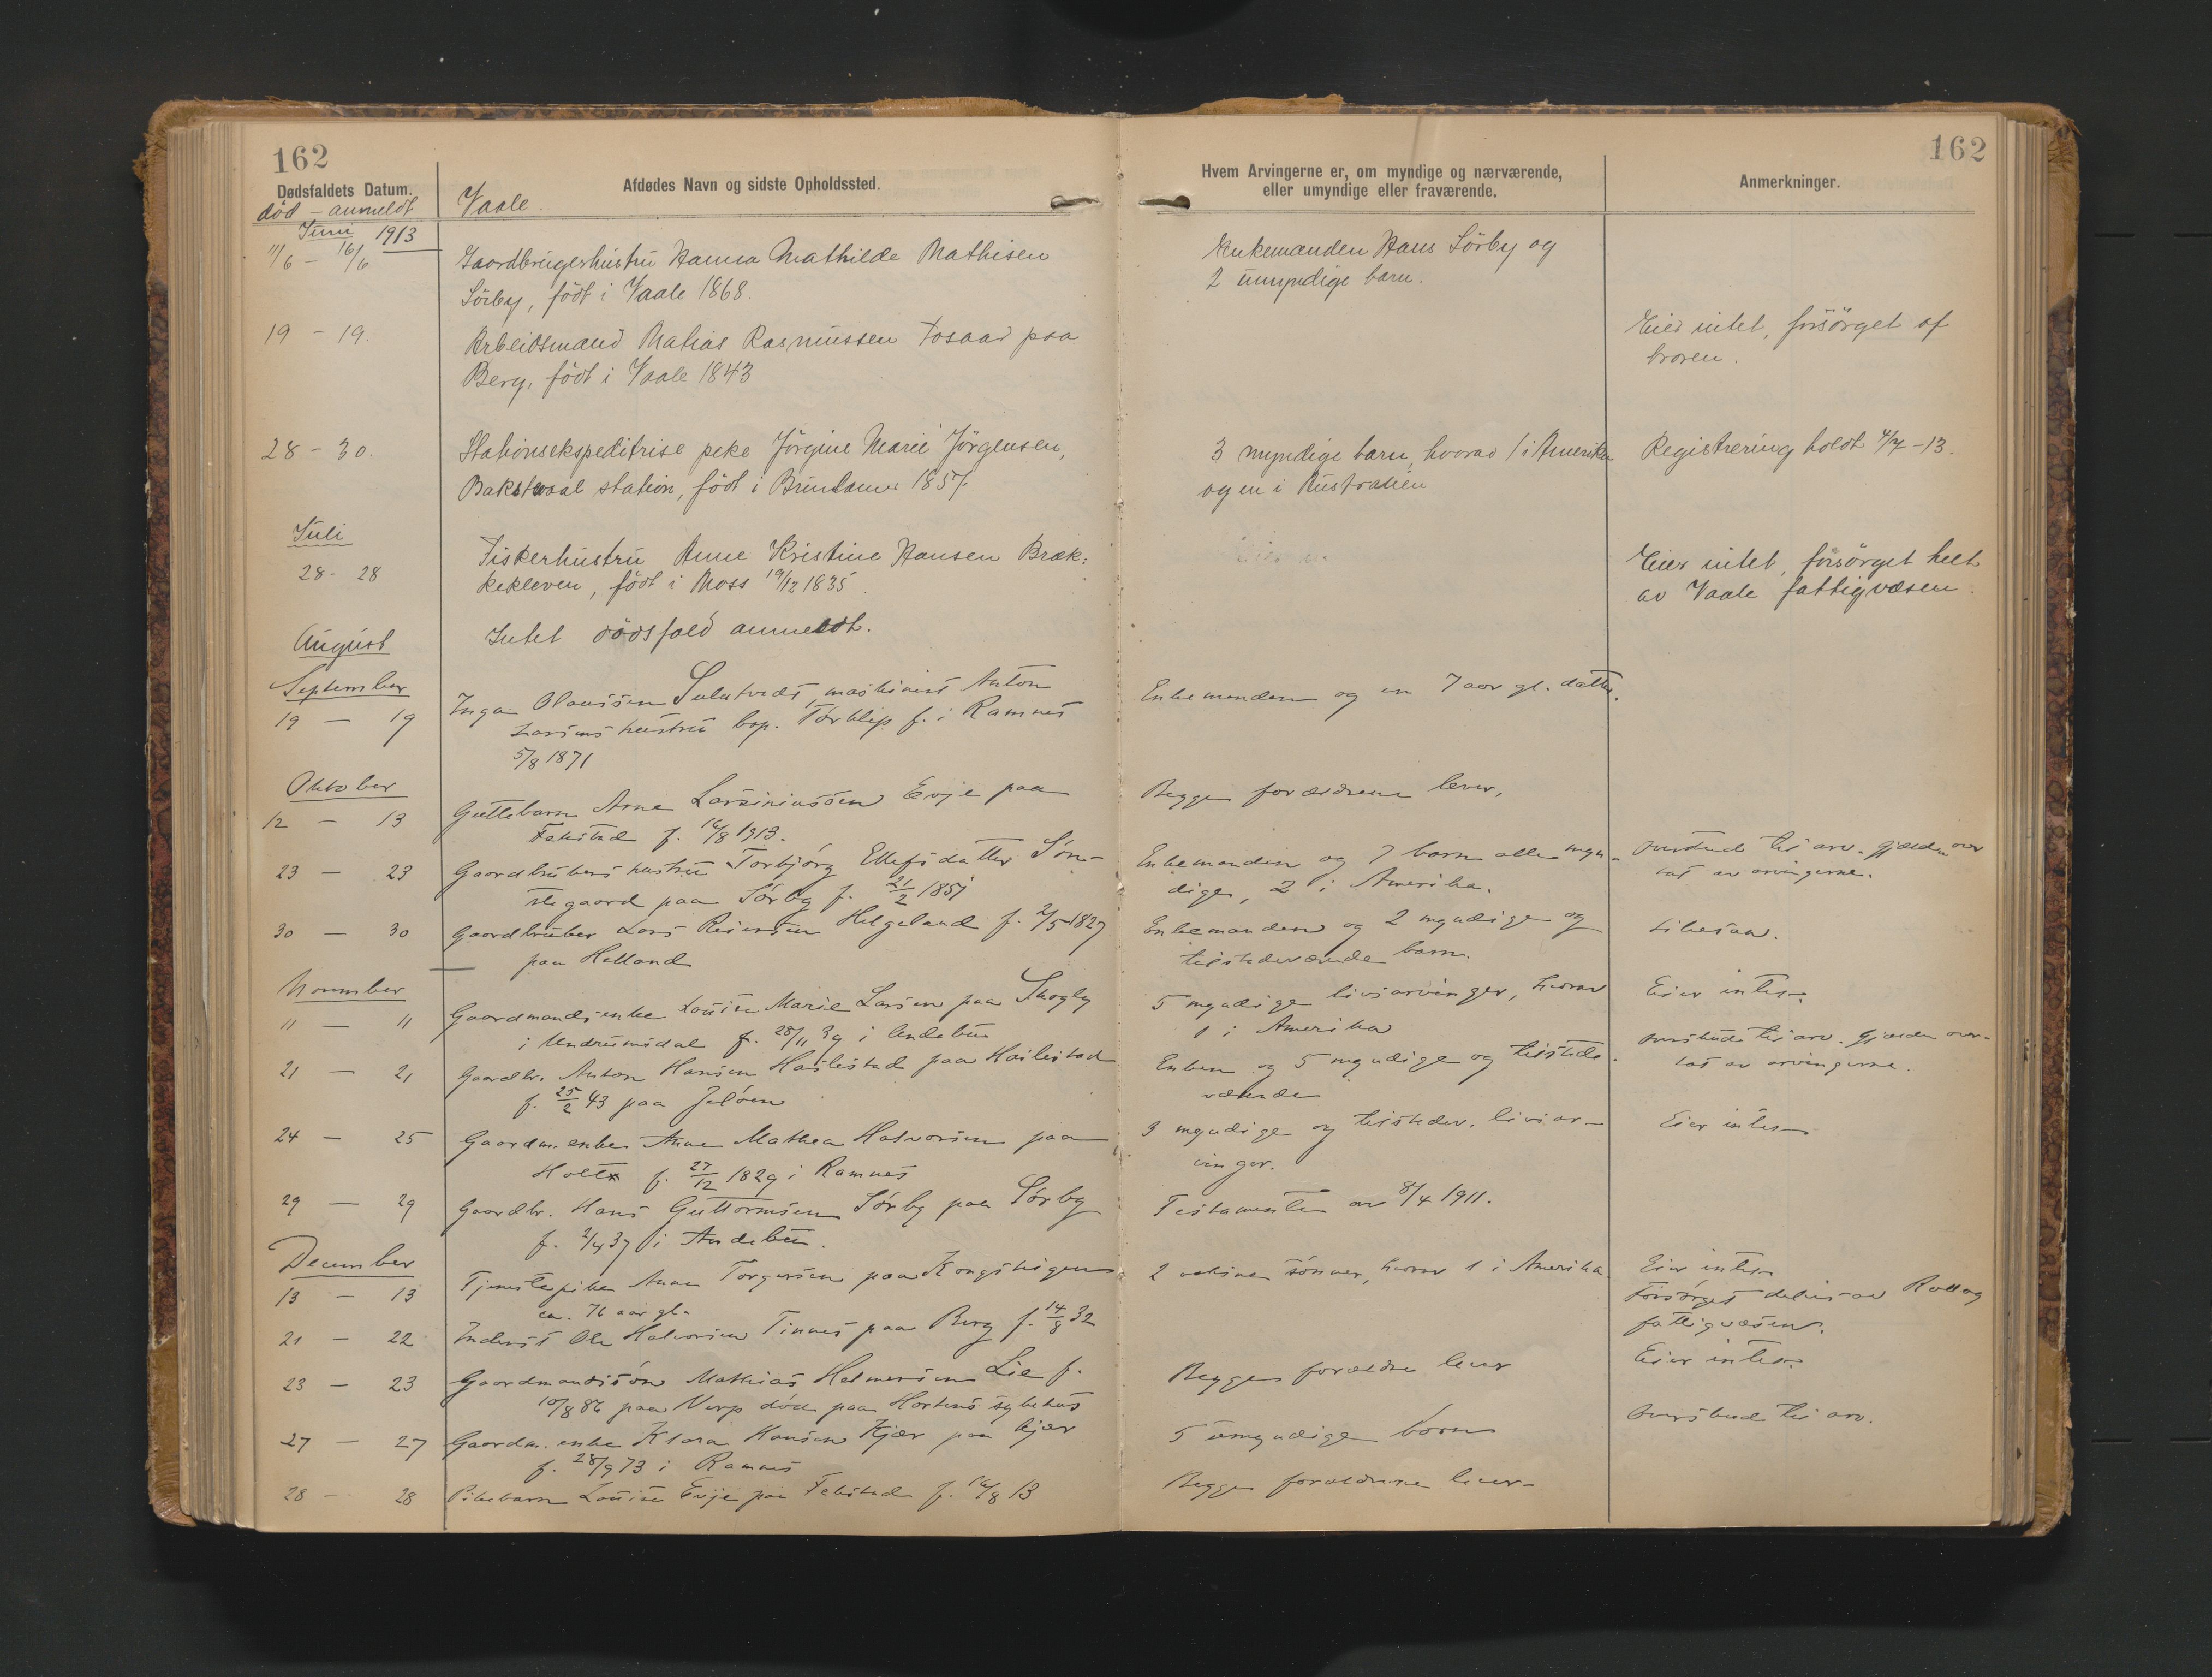 162
162
Dødsfaldets Datum.
Afdødes Navn og sidste Opholdssted.
Hvem Arvingerne er, om myndige og nærværende,
eller umyndige eller fraværende.
Anmerkninger.
død - anmeldt
Vaale.
Juni 1913
11/6 - 16/6
Gaardbrugerhustru Hanna Mathilde Mathisen
Sörby, født i Vaale 1868.
Enkemanden Hans Sörby og
2 umyndige barn.
19 - 19.
Arbeidsmand Matias Rasmussen Fosaas paa
Berg, född i Vaale 1843
Eied intet, forsörget af
broren.
28 - 30.
Stationsekspeditrise pike Jörgine Marie Jörgensen,
Bakstvaal station, född i Brunlanes 1857.
3 myndige barn, hvorav 1 i Amerika
og en i Australien
Registrering holdt 4/7-13.
Juli
28 - 28
Fiskerhustru Anne Kristine Hansen Bræk-
kekleven, född i Moss 19/12 1835.
Eier intet, forsörget helt
av Vaale fattigvæsen.
August
Intet dödsfald anmeldt.
September
19 - 19
Inga Olaussen Sulutvedt, maskinist Anton
Larsens hustru bop. Tørklep f. i Ramnes
5/8 1871
Enkemanden og en 7 aar gl. datter.
Oktober
12 - 13
Guttebarn Arne Larsiniussen Evje paa
Fekstad f. 16/8 1913.
Begge forældrene lever.
23 - 23
Gaardbrukers hustru Torbjørg Ellefsdatter Søn-
stegaard paa Sørby f. 21/2 1851
Enkemanden og 7 barn alle myn-
dige, 2 i Amerika.
Overstud til arv. Gjælden over
tat av arvingerne.
30 - 30
Gaardbruker Lars Reiersen Helgeland f. 2/5 1827
paa Helland
Enkemanden og 2 myndige og
tilstedeværende barn.
Likesaa.
November
11 - 11
Gaardmandsenke Louise Marie Larsen paa Skogly
i Undrumsdal f. 28/11 39 i Andebu
5 myndige livsarvinger, hvorav
1 i Amerika
Eier intet.
21 - 21
Gaardbr. Anton Hansen Haslestad paa Haslestad
f. 25/2 43 paa Jeløen
Enken og 5 myndige og tilstede-
værende
Overskud til arv. Gjælden over-
tat av arvingerne.
24 - 25
Gaardm. enke Anne Mathea Halvorsen paa
Holt f. 27/12 1829 i Ramnes
3 myndige og tilstedev. livsar-
vinger.
Eier intet
29 - 29
Gaardbr. Hans Guttormsen Sørby paa Sørby
f. 2/4 37 i Andebu.
Testamente av 8/4 1911.
December
13 - 13
Tjenestepike Anne Torgersen paa Kongshigen
ca. 76 aar gl.
2 voksne sønner, hvorav 1 i Amerika.
Eier intet
21 - 22
Inderst Ole Halvorsen Tinnes paa Berg f. 14/8 32
Forsørget delvis av
fattigvæsen.
23 - 23
Gaardmandssøn Mathias Helmersen Lie f.
10/8 86 paa Virp død paa Hortens sykehus
Begge forældre lever
Eier intet.
27 - 27
Gaardm. enke Klara Hansen Kjær paa Kjær
f. 28/9 73 i Ramnes
5 umyndige barn
Overskud til arv.
28 - 28
Pikebarn Louise Evje paa Fekstad f. 16/8 13
Begge forældrene lever